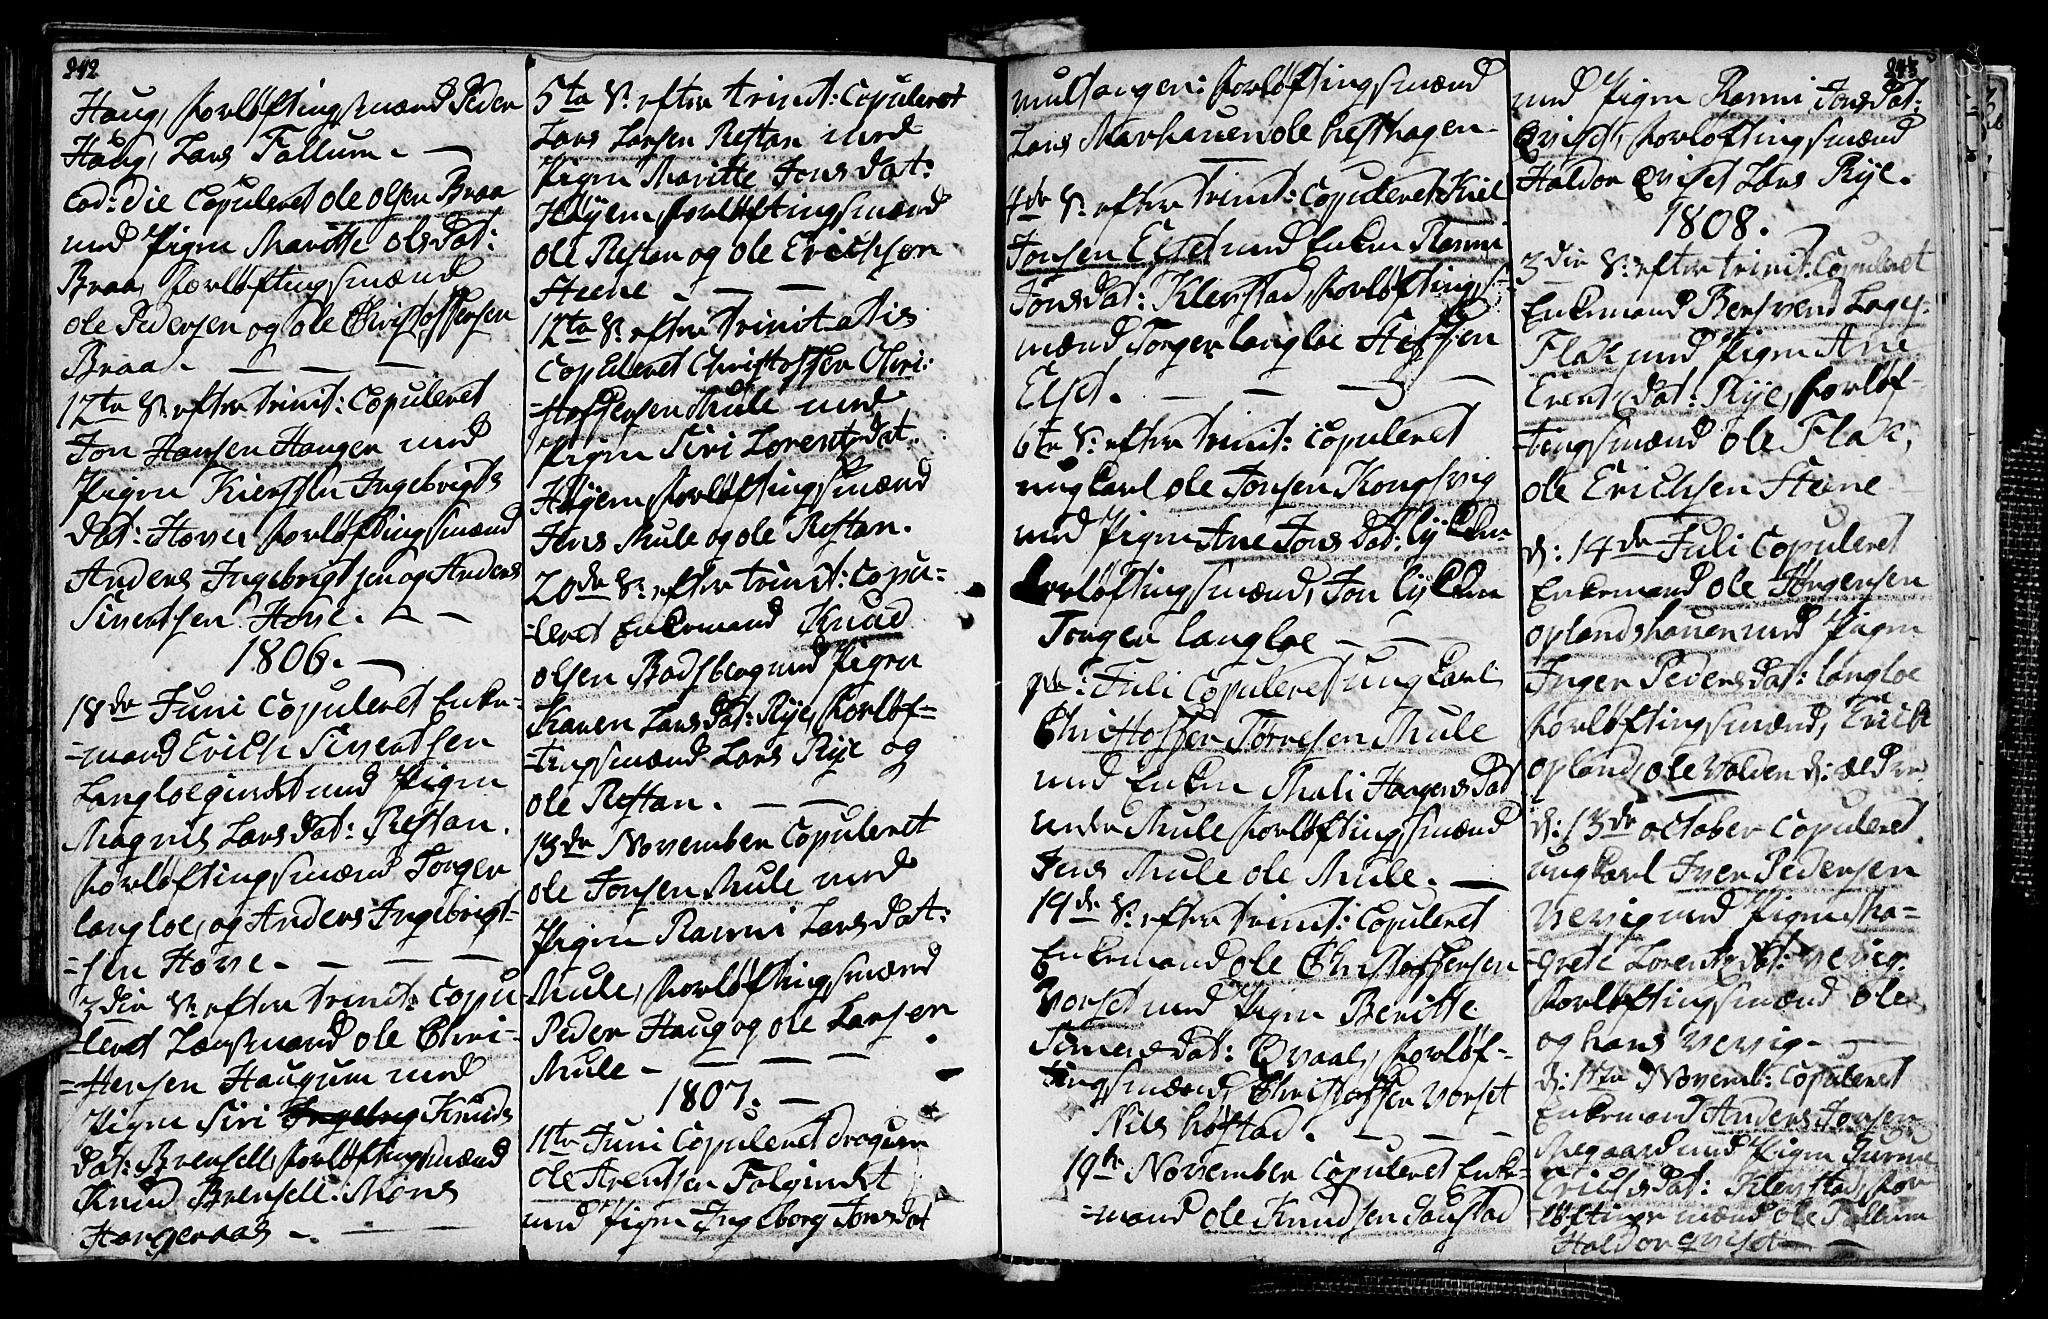 242
Haug, forløftingsmænd Peder
Haug, Lars Tallum. —
Eod: die Copuleret Ole Olsen Braa
med Pigen Maritte Olsdat:
Braa, forløftingsmænd
Ole Pedersen og Ole Christoffersen
Braa. — — —
17te S: efter Trinit: Copuleret
Jon Hansen Haugen med
Pigen Kiersten Ingebrigts
dat: Hove, forløftingsmænd
Anders Ingebrigtsen og Anders
Sivertsen Hove. — —
1806. —
18de Juni Copuleret Enke-
=mand Erich Sivertsen
Langloegiærdet med Pigen
Magnil Larsdat: Restan.
forløftingsmænd Torger
langloe, og Anders Ingebrigt-
=sen Hove. — — —
3die S: efter Trinit: Copu
=leret Lænsmand Ole Chri-
=stensen Haugum med
Pigen Siri Ingebrig Knuds
dat: Brensell, forløftingsmænd
Knud Brensell: Mons
Haugeraas —. —
5te S: efter Trinit: Copuleret
Lars Larsen Restan med
Pigen Maritte Jonsdat:
Høÿem, forløftingsmænd
Ole Restan og Ole Erichsen
Steene — — —
12te S: efter Trinitatis
Copuleret Christoffer Chri:
=stoffersen Mule med
Pigen Siri Lorentzdat:
Høÿem, forløftingsmænd
Jens Mule og Ole Restan.
20de S: efter Trinit: Copu-
=leret Enkemand Knud
Olsen Bodsberg med Pigen
Karen Larsdat: Rÿe, forløf-
=tingsmænd Lars Rÿe og
Ole Restan. — —
13de November Copuleret
Ole Jonsen Mule med
Pigen Ranni Larsdat:
Mule, forløftingsmænd
Peder Haug og Ole Larsen
Mule — — — —
1807. —
11te Juni Copuleret dragun
Ole Arentsen
med Pigen Ingeborg Jonsdat
243
forløftingsmænd
Lars Marhauen Ole Hesthagen.
4de S: efter Trinit: Copuleret Kiel
Jonsen Elset med Enken Ranni
Jonsdat: Klefstad, forløftings-
mænd Torger langloe Steffen
Elset. — — —
6te S: efter Trinit: Copuleret
ungkarl Ole Jonsen Kongsvig
med Pigen Ane Jonsdat: Lÿkken
forløftingsmænd, Jon Lÿkken
Torger langloe — —
Juli Copuleret ungkarl
Christoffer Torresen Mule
med Enken Mali Haagensdat
nedre Mule forløftingsmænd
Jens Mule Ole Mule. —
19de S: efter Trinit: Copuleret
Enkemand Ole Christoffersen
Vorset med Pigen Beritte
Simensdat: Qvaal, forløf-
tingsmænd, Christoffer Vorset
Nils Høstad. — — —
19de November Copuleret Enke-
=mand Ole Knudsen Saustad
med Pigen Ranni Jonsdat:
Qviset, forløftingsmænd
Haldor Qviset Lars Rÿe.
1808.
3die S: efter Trinit: Copuleret
Enkemand Bersvend
Flak med Pigen Ane
Evertsdat: Rÿe, forløf-
=tingsmænd Ole Flak,
Ole Erichsen Steene
d: 14de Juli Copuleret
Enkemand Ole Jørgensen
Oplandshauen med Pigen
Inger Pedersdat: langloe
forløftingsmænd, Erich
Opland, Ole Volden d: ældre.
d: 13de October Copuleret
ungkarl Iver Pedersen
Vevig med Pigen Ma-
=grete Lorentzdat: Vevig.
forløftingsmænd Ole
og Hans Vevig. — —
d: 17de Novemb: Copuleret
Enkemand Anders Jonsen
Megaard med Pigen Gurine
Erichsdat: Klefstad, for
løftingsmænd Ole Tallum
Haldor Qviset — —